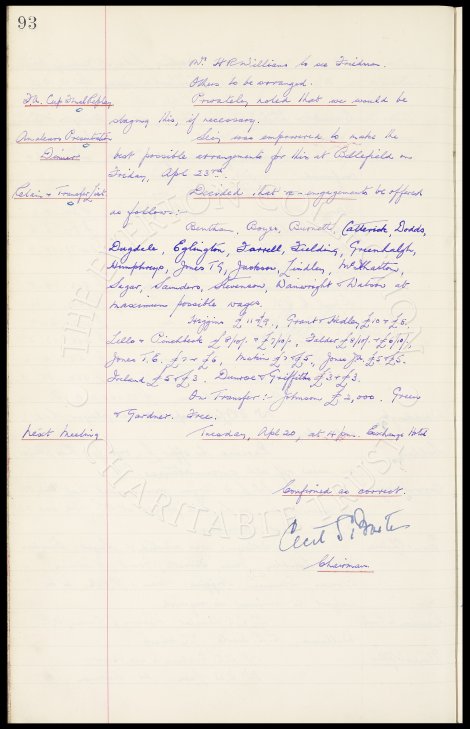 93
Mr. H R Williams to see Friedman.
Others to be arranged.
F.A. Cup Final Replay
Privately noted that we would be
staging this, if necessary.
Amateurs Presentation
Dinner
Secy was empowered to make the
best possible arrangements for this at Bellefield on
Friday, Apl 23rd.
Retain & Transfer List
Decided that re-engagements be offered
as follows:-
Bentham, Boyes, Burnett, Catterick, Dodds,
Dugdale, Eglington, Farrell, Fielding, Greenhalgh,
Humphreys, Jones TG, Jackson, Lindley, McIlhatton,
Sagar, Saunders, Stevenson, Wainwright & Watson at
maximum possible wages.
Higgins £11 & 9. Grant & Hedley £10 & £8.
Lello & Pinchbeck £8/10/- & £7/10/-, Falder £8/10/- & £6/10/-,
Jones T.E. £7 & £6, Makin £7 & £5, Jones Jn. £5 & £5.
Ireland £5 & £3. & Griffiths £3 & £3.
On Transfer:- Johnson £2,000. Green
& Gardner. Free.
Next Meeting
Tuesday, Apl 20, at 4 pm. Exchange Hotel
Confirmed as correct.
Cecil S Baxter
Chairman
THE EVERTON
CHARITABLE TRUST